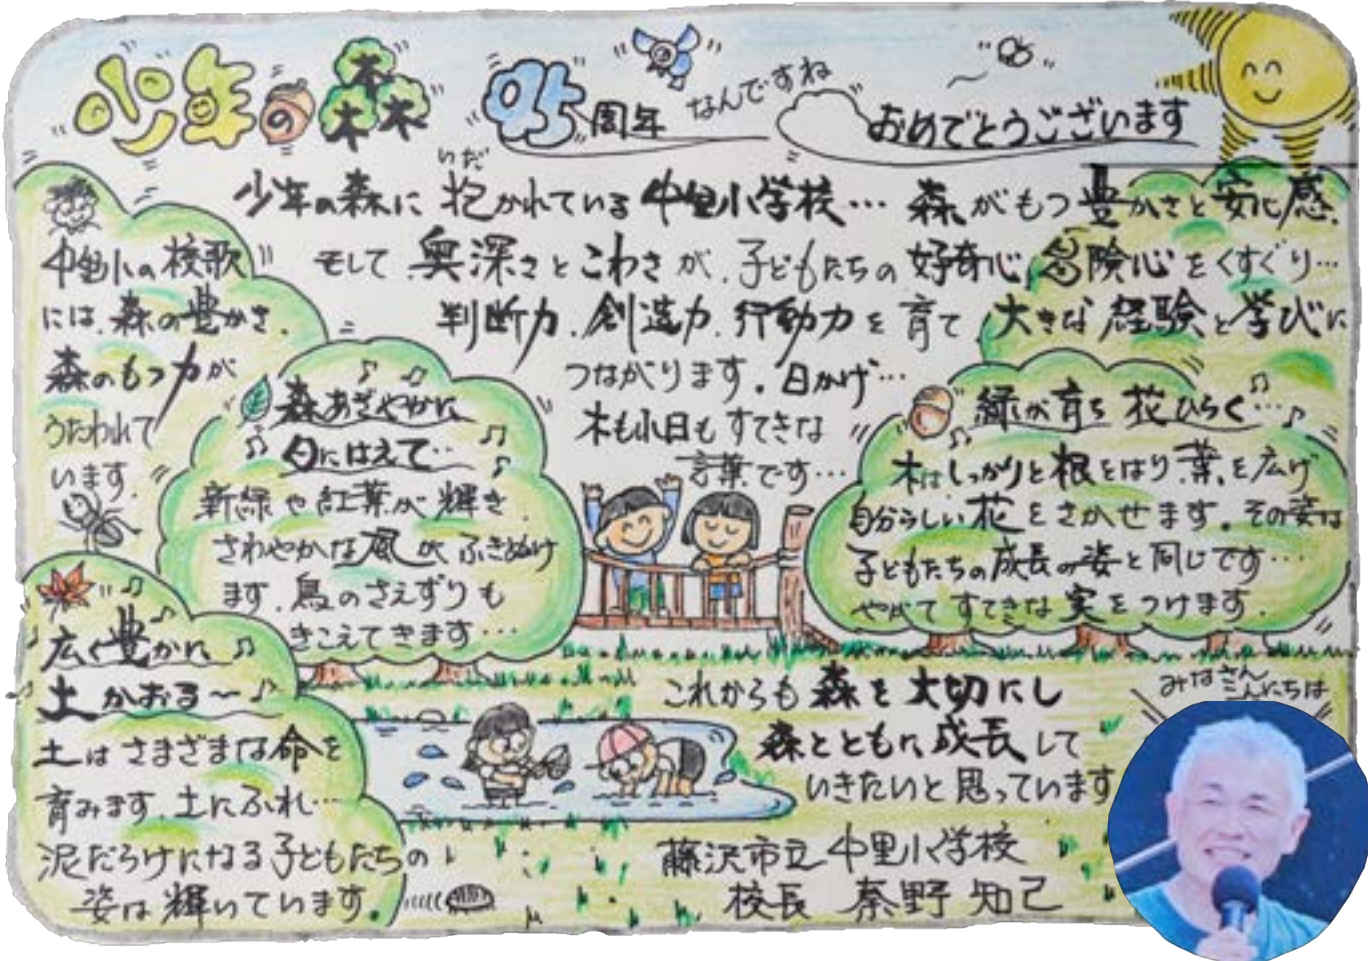 少年の森
45周年
なんですね
おめでとうございます
少年の森に抱かれている中里小学校… 森がもつ豊かさと安心感、
いだ
そして奥深さとこわさが、子どもたちの好奇心、冒険心をくすぐり…
判断力、創造力、行動力を育て大きな経験と学びに
つながります。日かげ…
木も小日もすてきな
言葉です…
中里小の校歌
には、森の豊かさ、
森のもつ力が
うたわれて
います。
森あざやかに
夕にはえて…
新緑や紅葉が輝き、
さわやかな風がふきぬけ
ます。鳥のさえずりも
きこえてきます…
緑が育ち花ひらく…
木はしっかりと根をはり、葉を広げ
自分らしい花をさかせます。その姿は
子どもたちの成長の姿と同じです…
やがてすてきな実をつけます。
広く豊かに
土かおる〜
土はさまざまな命を
育みます。土にふれ…
泥だらけになる子どもたちの
姿は輝いています。
これからも森を大切にし
森とともに成長して
いきたいと思っています
みなさん
こんにちは
藤沢市立中里小学校
校長 秦野 知己